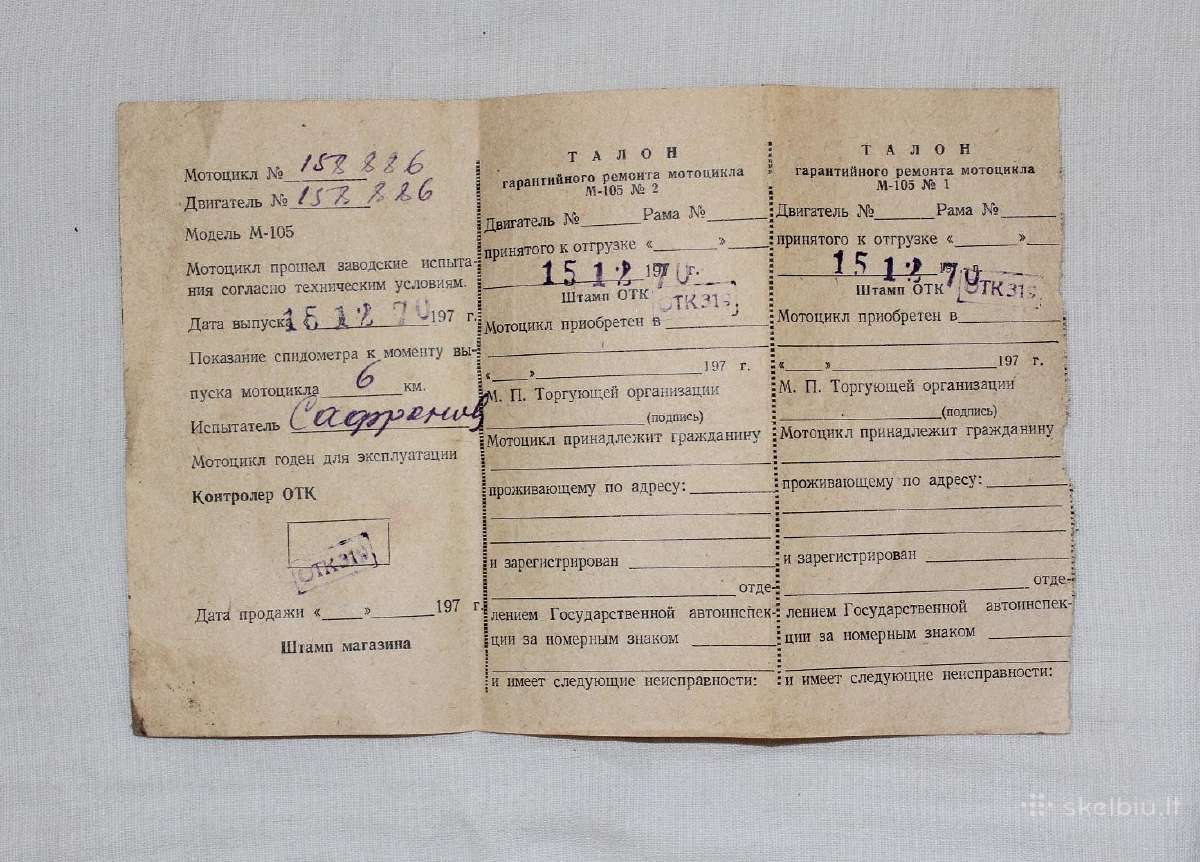 Мотоцикл № 158886
Двигатель № 158886
Модель М-105
Мотоцикл прошел заводские испыта-
ния согласно техническим условиям.
Дата выпуска 15 12 70 197 г.
Показание спидометра к моменту вы-
пуска мотоцикла 6 км.
Испытатель Сафронов
Мотоцикл годен для эксплуатации
Контролер ОТК
ОТК 319
Дата продажи «____»______197 г.
Штамп магазина
ТАЛОН
гарантийного ремонта мотоцикла
М-105 № 2
Двигатель №______Рама №______
принятого к отгрузке «______»____
15 12 197 70 г.
Штамп ОТК ОТК 319
Мотоцикл приобретен в________
«____»________________197 г.
М. П. Торгующей организации
(подпись)
Мотоцикл принадлежит гражданину
проживающему по адресу:________
и зарегистрирован ____________
отде-
лением Государственной автоинспек-
ции за номерным знаком ________
и имеет следующие неисправности:
ТАЛОН
гарантийного ремонта мотоцикла
М-105 № 1
Двигатель №______Рама №______
принятого к отгрузке «______»____
15 12 197 70
Штамп ОТК ОТК 319
Мотоцикл приобретен в________
«____»________________197 г.
М. П. Торгующей организации
(подпись)
Мотоцикл принадлежит гражданину
проживающему по адресу:________
и зарегистрирован ____________
отде-
лением Государственной автоинспек-
ции за номерным знаком ________
и имеет следующие неисправности:
skelbiu.lt